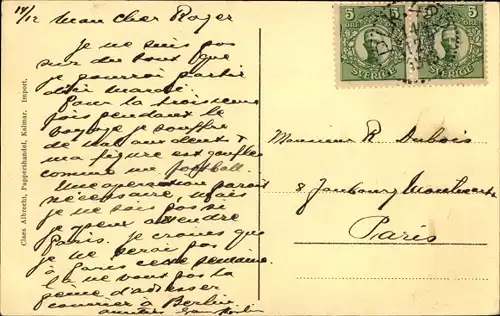 14/12 Mon cher Roger
Je ne suis pas
sur du tout que
je pourrai partir
d'ici mardi
Pour la troisieme
fois pendant le
voyage je souffre
de mal aux dents &
ma figure est gonflee
comme un football.
Une operation parait
necessaire, mais
je ne sais pas si
je peux attendre
Paris. Je crains que
je ne serai pas
à Paris cette semaine.
Ce ne vaut pas la
peine d'adresser
courrier à Berlin
amitiés
Monsieur R Dubois
8 Faubourg Montmartre
Paris
5 5
SVERIGE SVERIGE
Claes Albrecht, Pappershandel, Kalmar. Import.